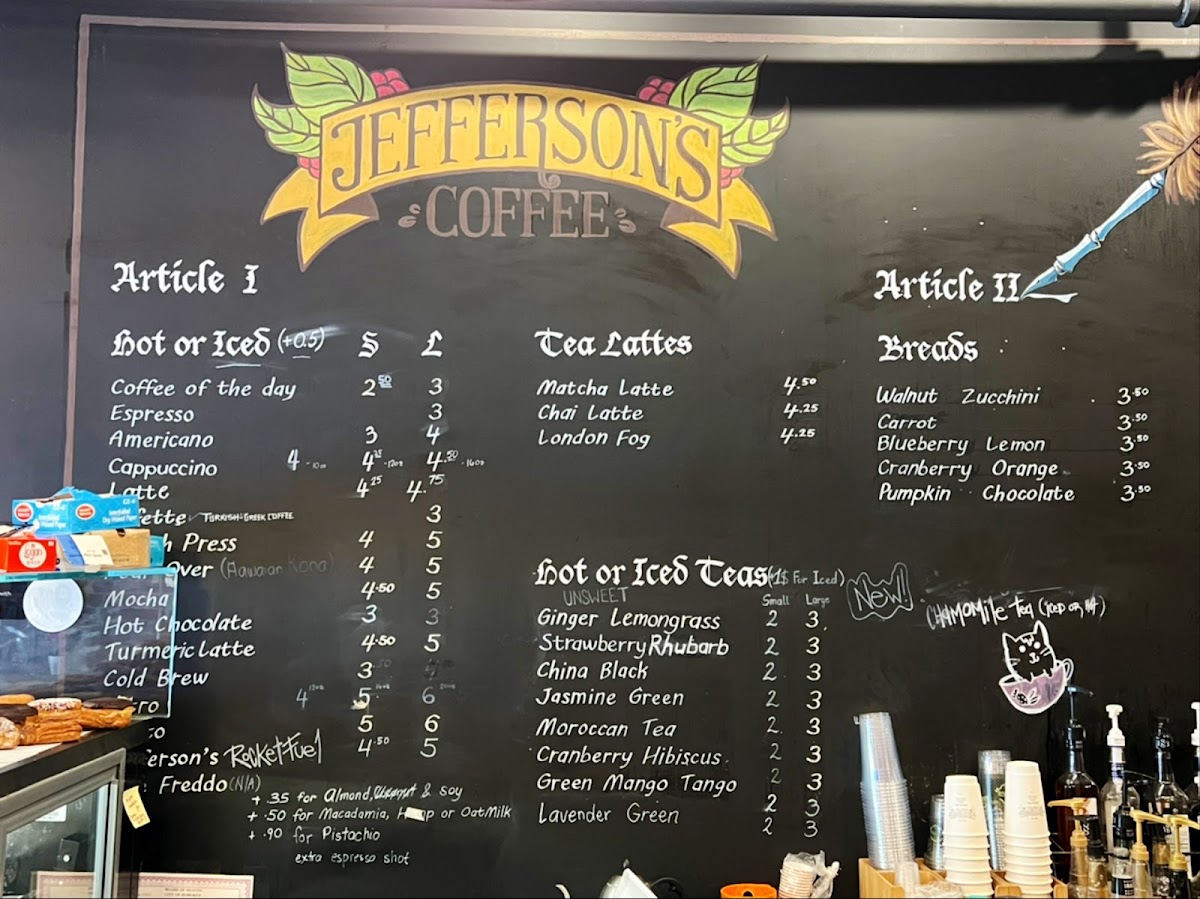 JEFFERSON'S
COFFEE
Article I
Hot or Iced (+0.5) S L
Coffee of the day 2.50 3
Espresso 3
Americano 3 4
Cappuccino 4 -10oz 4.25 -12oz 4.50 -16oz
Latte 4.25 4.75
TURKISH-GREEK COFFEE 3
Press 4 5
Over (Hawaiian Kona) 4 5
Mocha 4.50 5
Hot Chocolate 3 3
Turmeric Latte 4.50 5
Cold Brew 3
4 12oz 5 6
5 6
Rocket Fuel 4.50 5
Freddo (N/A)
+ .35 for Almond, & Soy
+ .50 for Macadamia, Hemp or Oat Milk
+ .90 for Pistachio
extra espresso shot
Tea Lattes
Matcha Latte 4.50
Chai Latte 4.25
London Fog 4.25
Hot or Iced Teas (+1$ For Iced)
UNSWEET Small Large
Ginger Lemongrass 2 3
Strawberry Rhubarb 2 3
China Black 2 3
Jasmine Green 2 3
Moroccan Tea 2 3
Cranberry Hibiscus 2 3
Green Mango Tango 2 3
Lavender Green 2 3
2 3
Article II
Breads
Walnut Zucchini 3.50
Carrot 3.50
Blueberry Lemon 3.50
Cranberry Orange 3.50
Pumpkin Chocolate 3.50
New!
CHAMOMILE tea (ICED OR HOT)